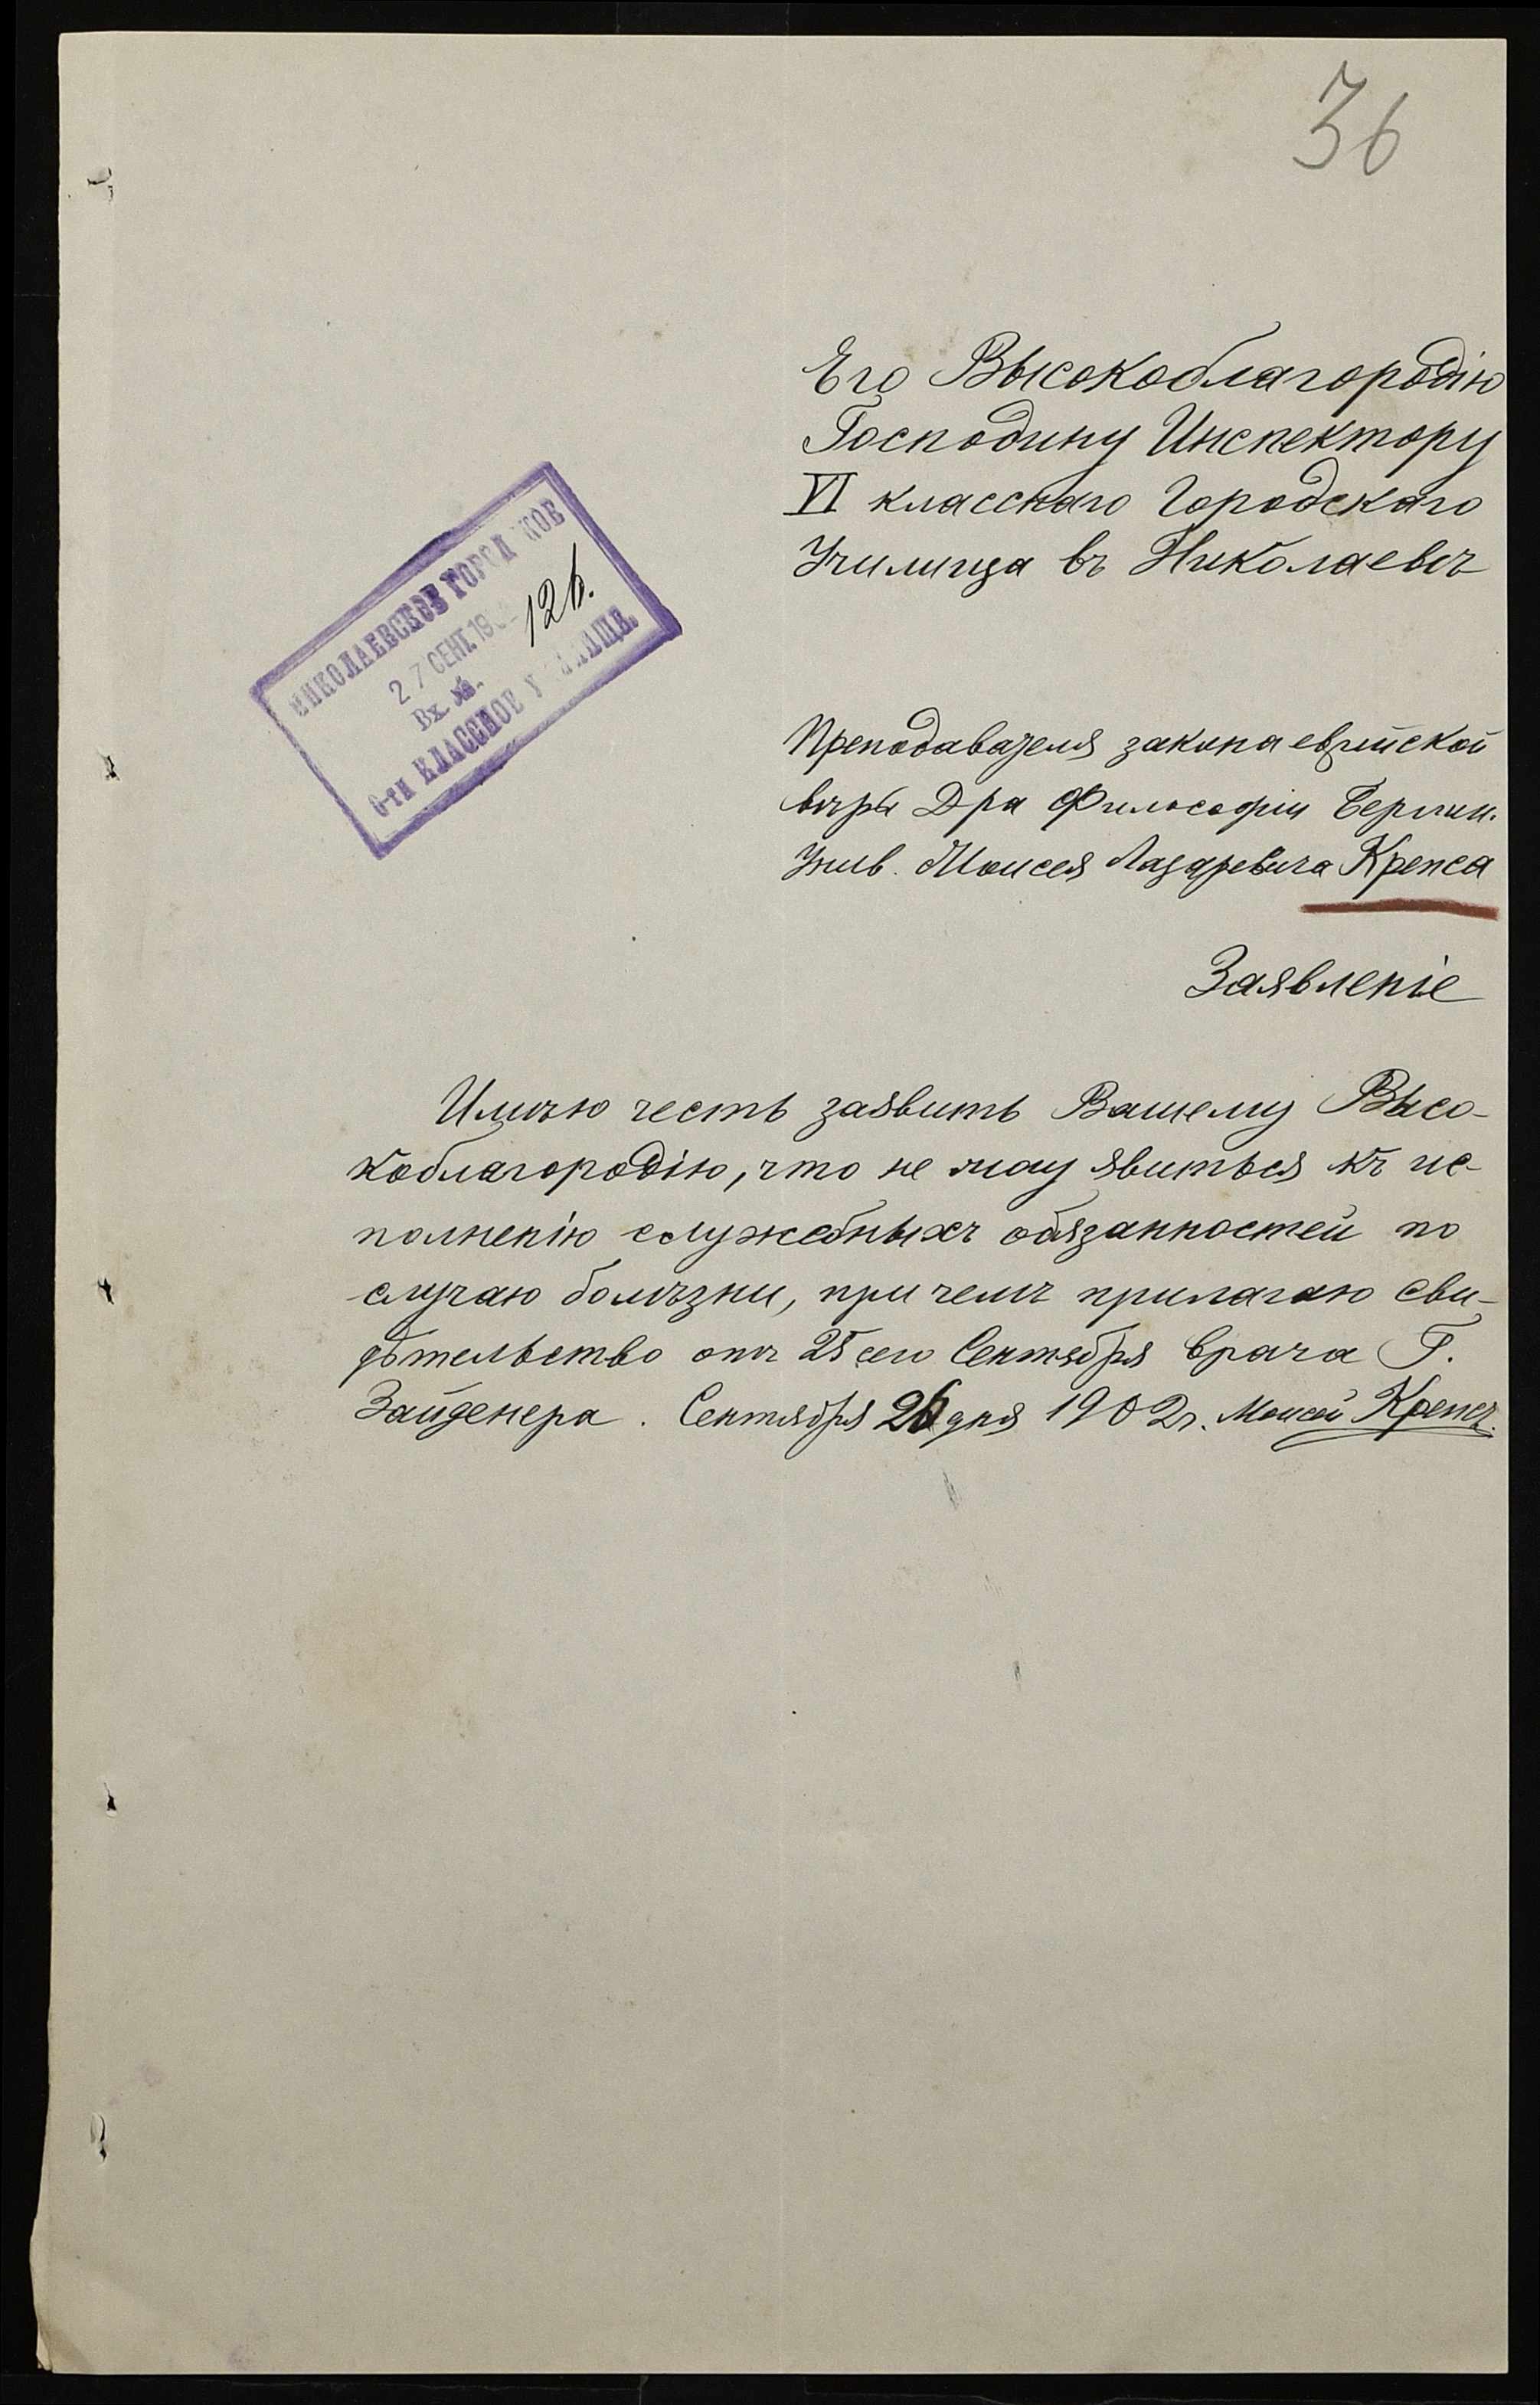 36
Его Высокоблагородію
Господину Инспектору
VI класснаго Городскаго
Училища въ Николаевѣ
НИКОЛАЕВСКОЕ ГОРОДСКОЕ
27 СЕНТ. 190
Вх. №. 126.
6-ти КЛАССНОЕ УЧИЛИЩЕ.
Преподавателя закона еврейской
вѣры Д-ра Философіи Берлин.
Унив. Моисея Лазаревича Крепса
Заявленіе
Имѣю честь заявить Вашему Высо-
коблагородію, что не могу явиться къ ис-
полненію служебныхъ обязанностей по
случаю болѣзни, при чемъ прилагаю сви-
дѣтельство отъ 25 сего Сентября врача Г.
Зайденера. Сентября 26 дня 1902 г. Моисей Крепсъ.